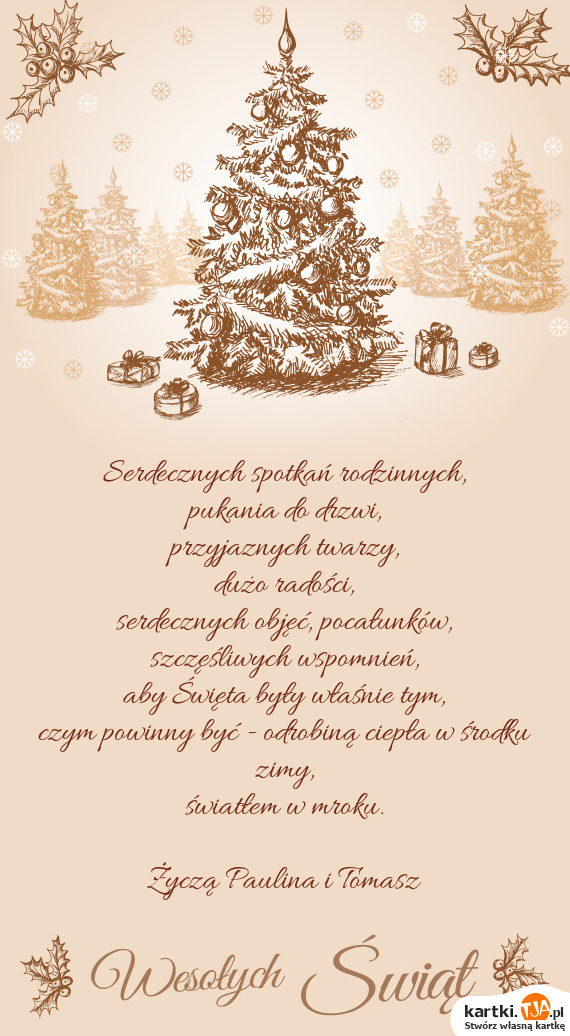 Serdecznych spotkań rodzinnych,
pukania do drzwi,
przyjaznych twarzy,
dużo radości,
serdecznych objęć, pocałunków,
szczęśliwych wspomnień,
aby Święta były właśnie tym,
czym powinny być - odrobiną ciepła w środku
zimy,
światłem w mroku.
Życzą Paulina i Tomasz
Wesołych Świąt
kartki.TJA.pl
Stwórz własną kartkę